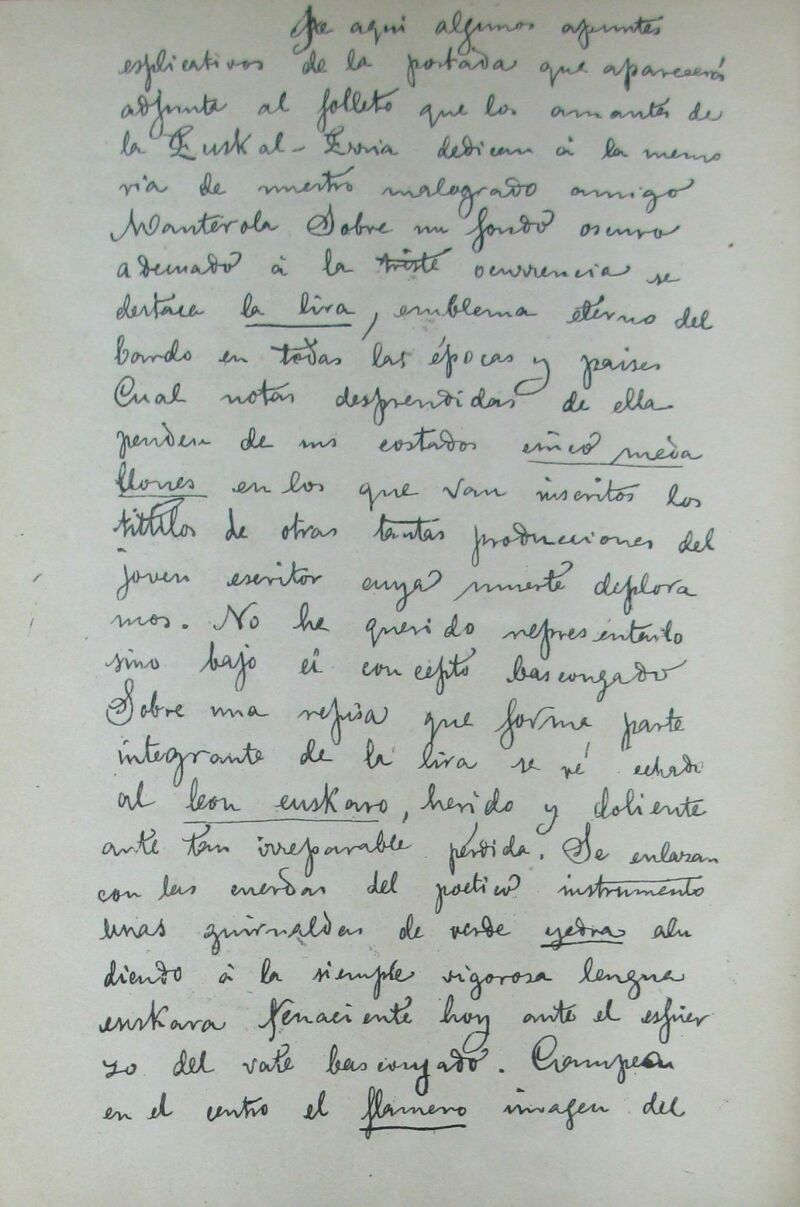 He aqui algunos apuntes
esplicativos de la portada que aparecerá
adjunta al folleto que los amantes de
la Euskal-Erria dedican á la memo
ria de nuestro malogrado amigo
Manterola Sobre un fondo oscuro
adecuado á la triste ocurrencia se
destaca la lira, emblema eterno del
bardo en todas las épocas y paises
Cual notas desprendidas de ella
penden de sus costados cinco meda
llones en los que van inscritos los
tittulos de otras tantas producciones del
joven escritor cuya muerte deplora
mos. No he querido representarlo
sino bajo el concepto bascongado
Sobre una repisa que forma parte
integrante de la lira se vé echado
al leon euskaro, herido y doliente
ante tan irreparable pérdida. Se enlazan
con las cuerdas del poetico instrumento
unas guirnaldas de verde yedra alu
diendo á la siempre vigorosa lengua
euskara renaciente hoy ante el esfuer
zo del vate bascongado. Campea
en el centro el flamero imagen del